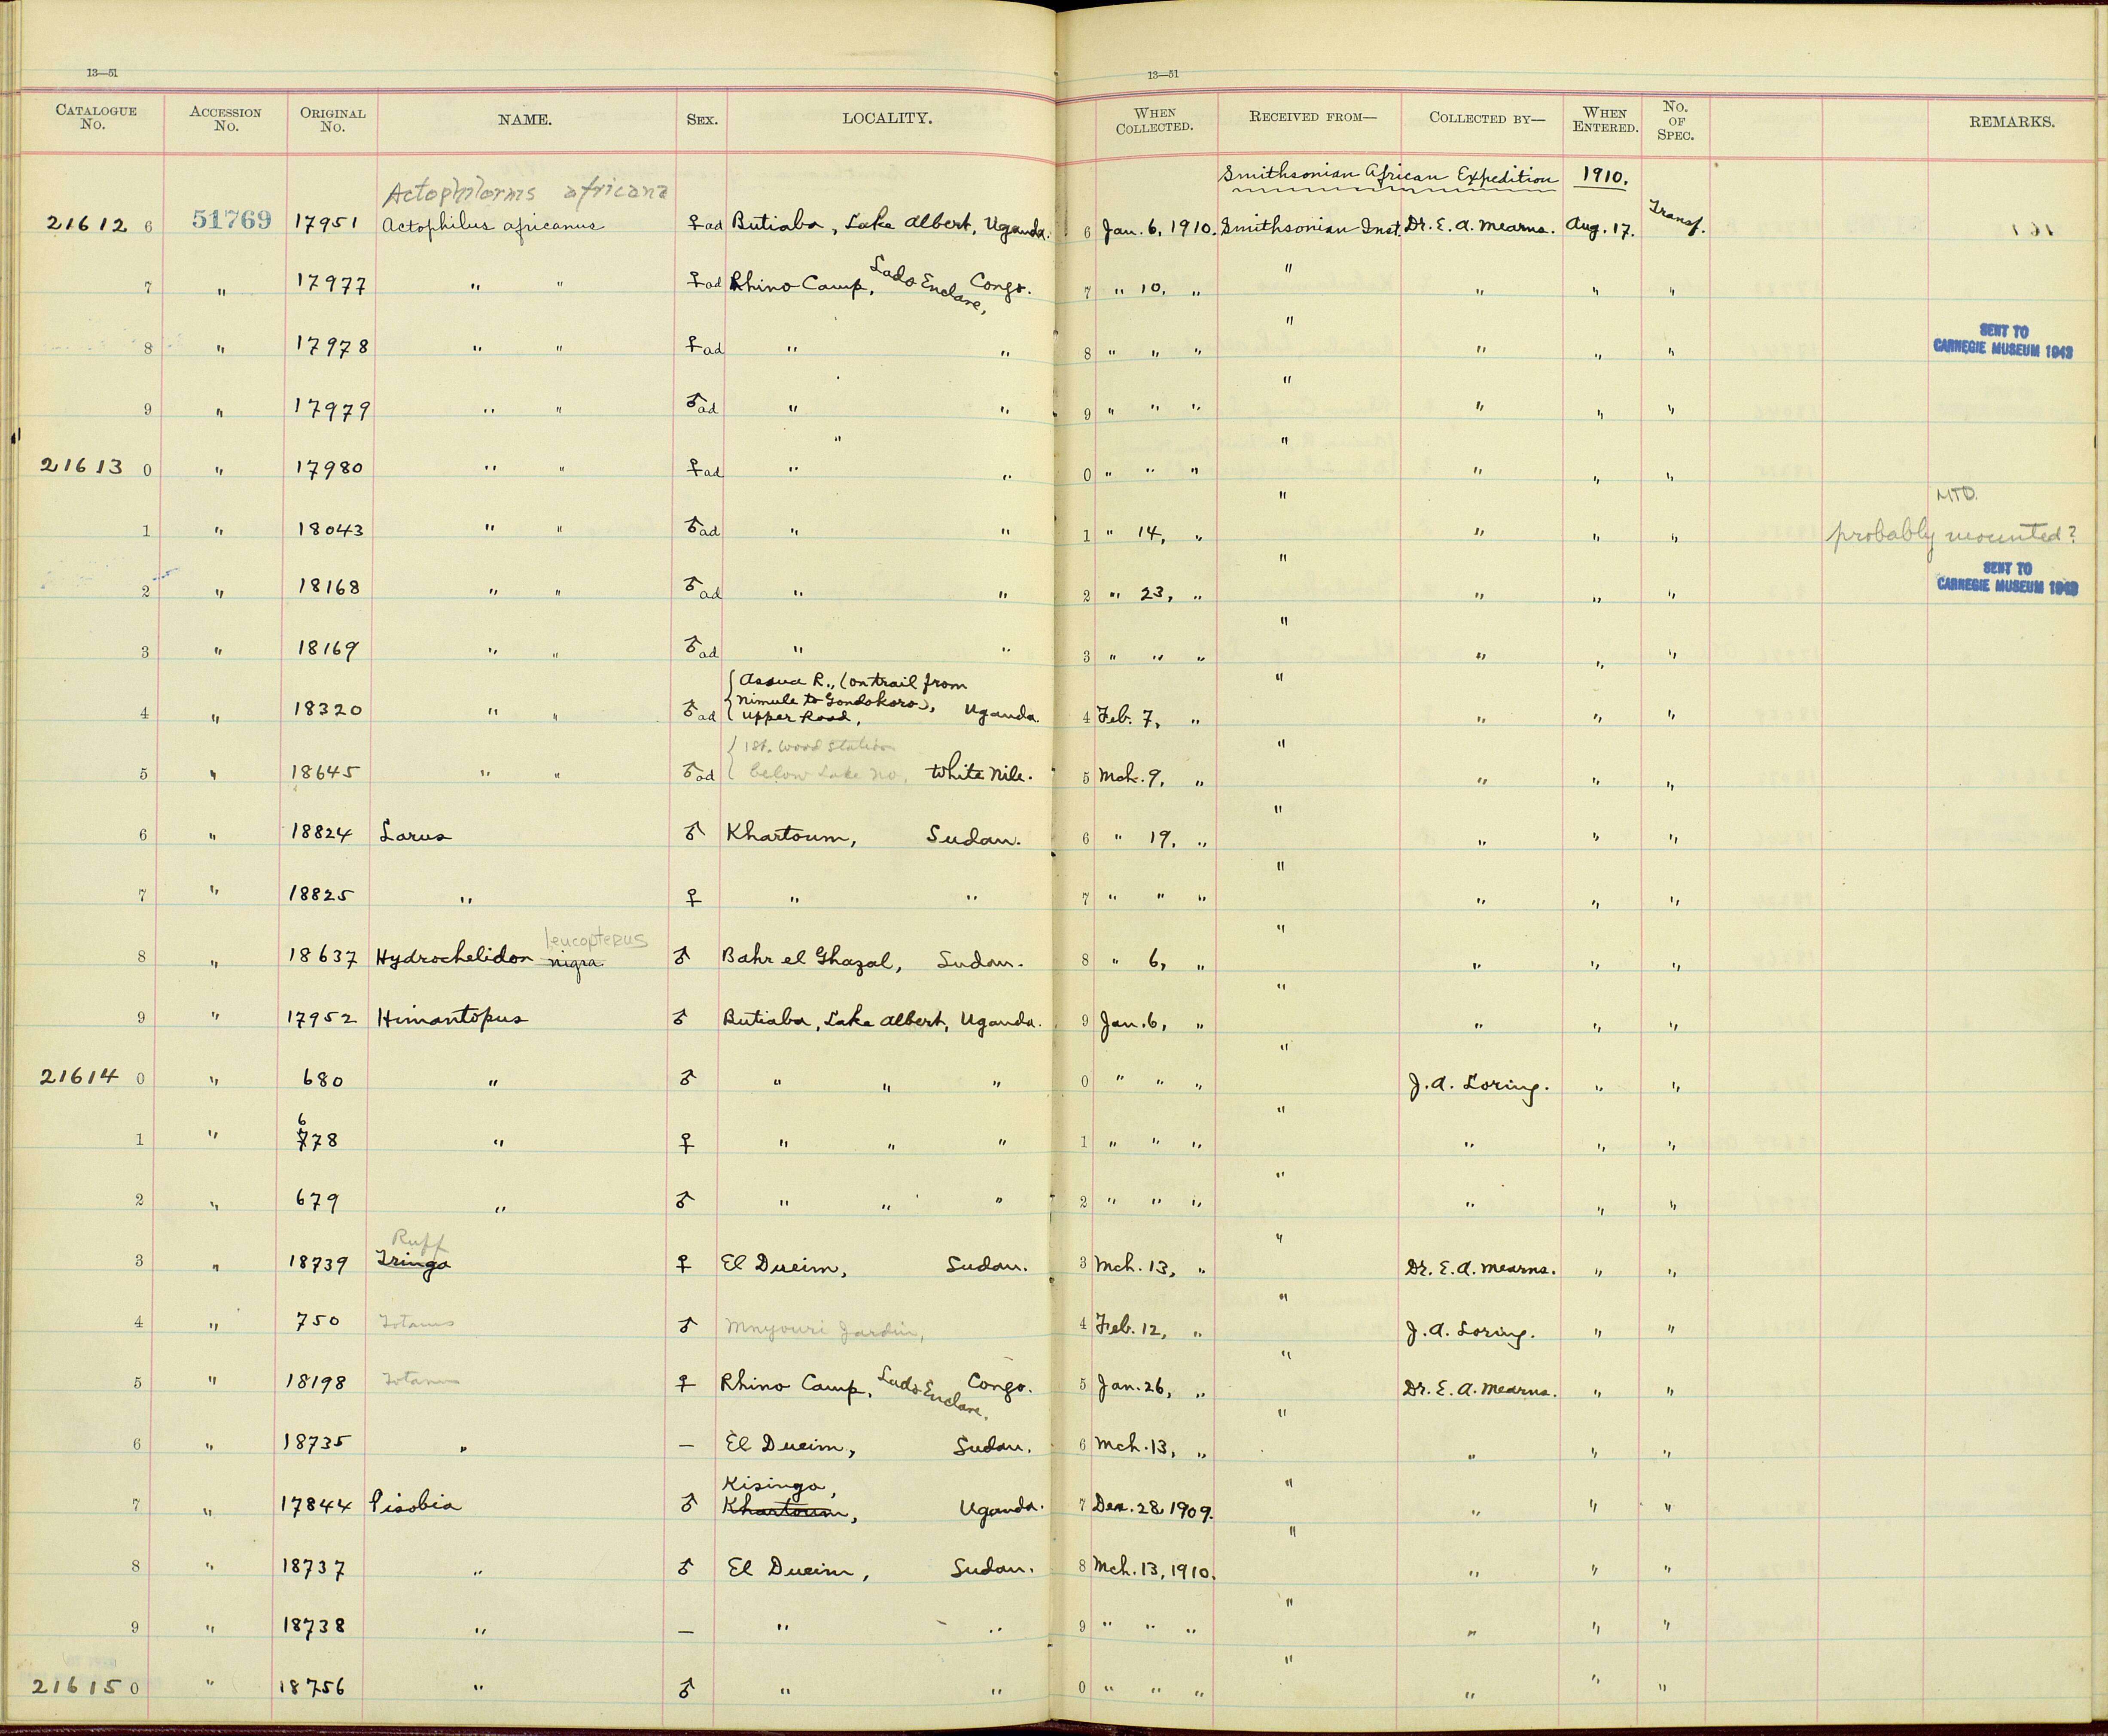 13—51
13—51
CATALOGUE No. ACCESSION No. ORIGINAL No. NAME. SEX. LOCALITY. WHEN COLLECTED. RECEIVED FROM— COLLECTED BY— WHEN ENTERED. No. OF SPEC. REMARKS.
Smithsonian African Expedition 1910.
Actophilornis africana
21612 6 51769 17951 Actophilus africanus ♀ad Butiaba, Lake Albert, Uganda. 6 Jan. 6, 1910. Smithsonian Inst. Dr. E. A. Mearns. Aug. 17. Transf.
7 " 17977 " " ♀ad Rhino Camp, Lado Enclave, Congo. 7 " 10, " " " " "
8 " 17978 " " ♀ad " " 8 " " " " " " " SENT TO CARNEGIE MUSEUM 1943
9 " 17979 " " ♂ad " " 9 " " " " " " "
21613 0 " 17980 " " ♀ad " " " 0 " " " " " " "
MTD.
1 " 18043 " " ♂ad " " 1 " 14, " " " " " probably mounted?
2 " 18168 " " ♂ad " " 2 " 23, " " " " " SENT TO CARNEGIE MUSEUM 1943
3 " 18169 " " ♂ad " " 3 " " " " " " "
Assua R., (on trail from
Nimule to Gondokoro),
4 " 18320 " " ♂ad Upper Road, Uganda. 4 Feb. 7, " " " " "
1st. Wood Station
5 " 18645 " " ♂ad below Lake No, White Nile. 5 Mch. 9, " " " " "
6 " 18824 Larus ♂ Khartoum, Sudan. 6 " 19, " " " " "
7 " 18825 " ♀ " " 7 " " " " " " "
leucopterus
8 " 18637 Hydrochelidon nigra ♂ Bahr el Ghazal, Sudan. 8 " 6, " " " " "
9 " 17952 Himantopus ♂ Butiaba, Lake Albert, Uganda. 9 Jan. 6, " " " " "
21614 0 " 680 " ♂ " " " 0 " " " " J. A. Loring. " "
6
1 " 778 " ♀ " " " 1 " " " " " " "
2 " 679 " ♂ " " " 2 " " " " " " "
Ruff
3 " 18739 Tringa ♀ El Dueim, Sudan. 3 Mch. 13, " " Dr. E. A. Mearns. " "
4 " 750 Totanus ♂ 4 Feb. 12, " " J. A. Loring. " "
5 " 18198 Totanus ♀ Rhino Camp, Lado Enclave, Congo. 5 Jan. 26, " " Dr. E. A. Mearns. " "
6 " 18735 " — El Dueim, Sudan. 6 Mch. 13, " " " " "
Kisingo,
7 " 17844 Pisobia ♂ Khartoum, Uganda. 7 Dec. 28, 1909. " " " "
8 " 18737 " ♂ El Dueim, Sudan. 8 Mch. 13, 1910. " " " "
9 " 18738 " — " " 9 " " " " " " "
21615 0 " 18756 " ♂ " " 0 " " " " " " "